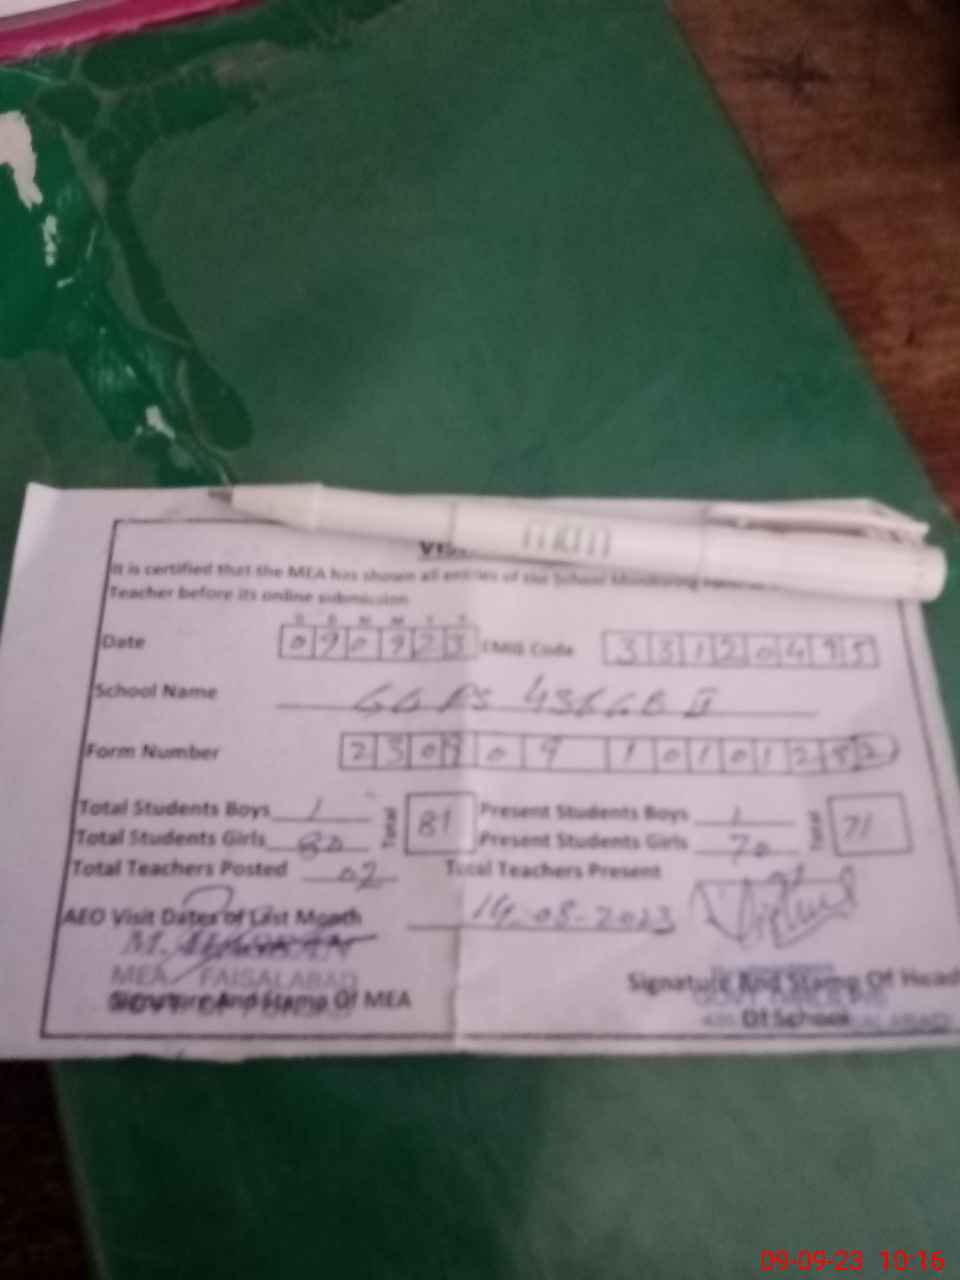 It is certified that the MEA has shown all entries of the School Monitoring
Teacher before its online submission
D D M M Y Y
Date 090923 EMIS Code 33120495
School Name GGPS 436 GB II
Form Number 23090910101282
Total Students Boys 1 Total 81 Present Students Boys 1 Total 71
Total Students Girls 80 Present Students Girls 70
Total Teachers Posted 02 Total Teachers Present
AEO Visit Dates of Last Month 14-08-2023
M.
MEA FAISALABAD
Signature And Stamp Of MEA Signature And Stamp Of Head
Of School
09-09-23 10:16